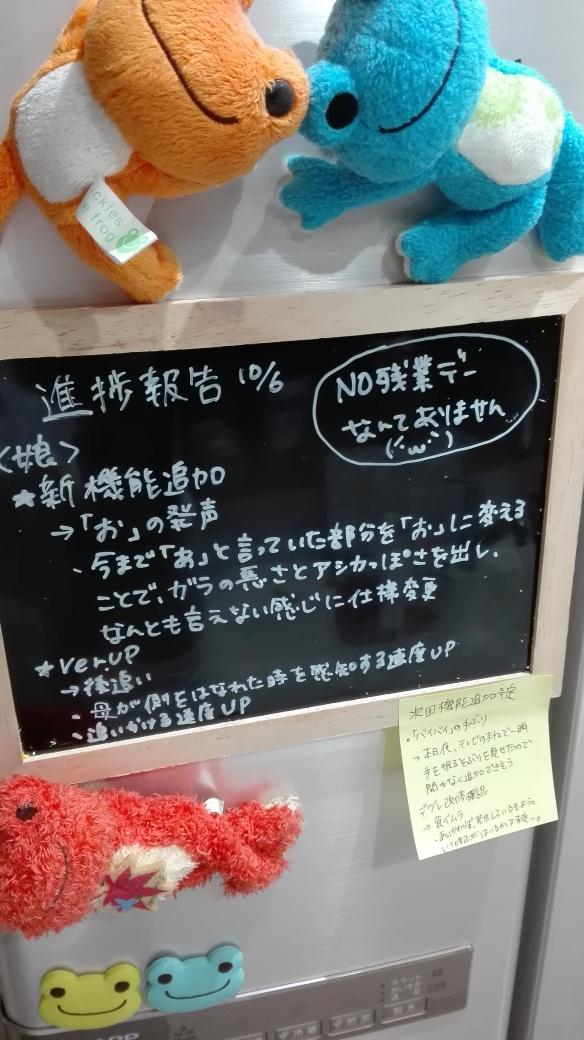 ckles
e frog
進捗報告 10/6
NO残業デー
なんてありません
(´・ω・`)
<娘>
★新機能追加
→「お」の発声
、今まで「あ」と言っていた部分を「お」に変える
ことで、ガラの悪さとアシカっぽさを出し、
なんとも言えない感じに仕様変更
★ver.UP
→後追い
・母が側をはなれた時を感知する速度UP
・追いかける速度UP
次回機能追加予定
・「バイバイ」の手ぶり
→本日夜、テレビのまねで一瞬
手を振るそぶりを見せたので、
間もなく追加できそう
デグレ改修確認
→食べムラ